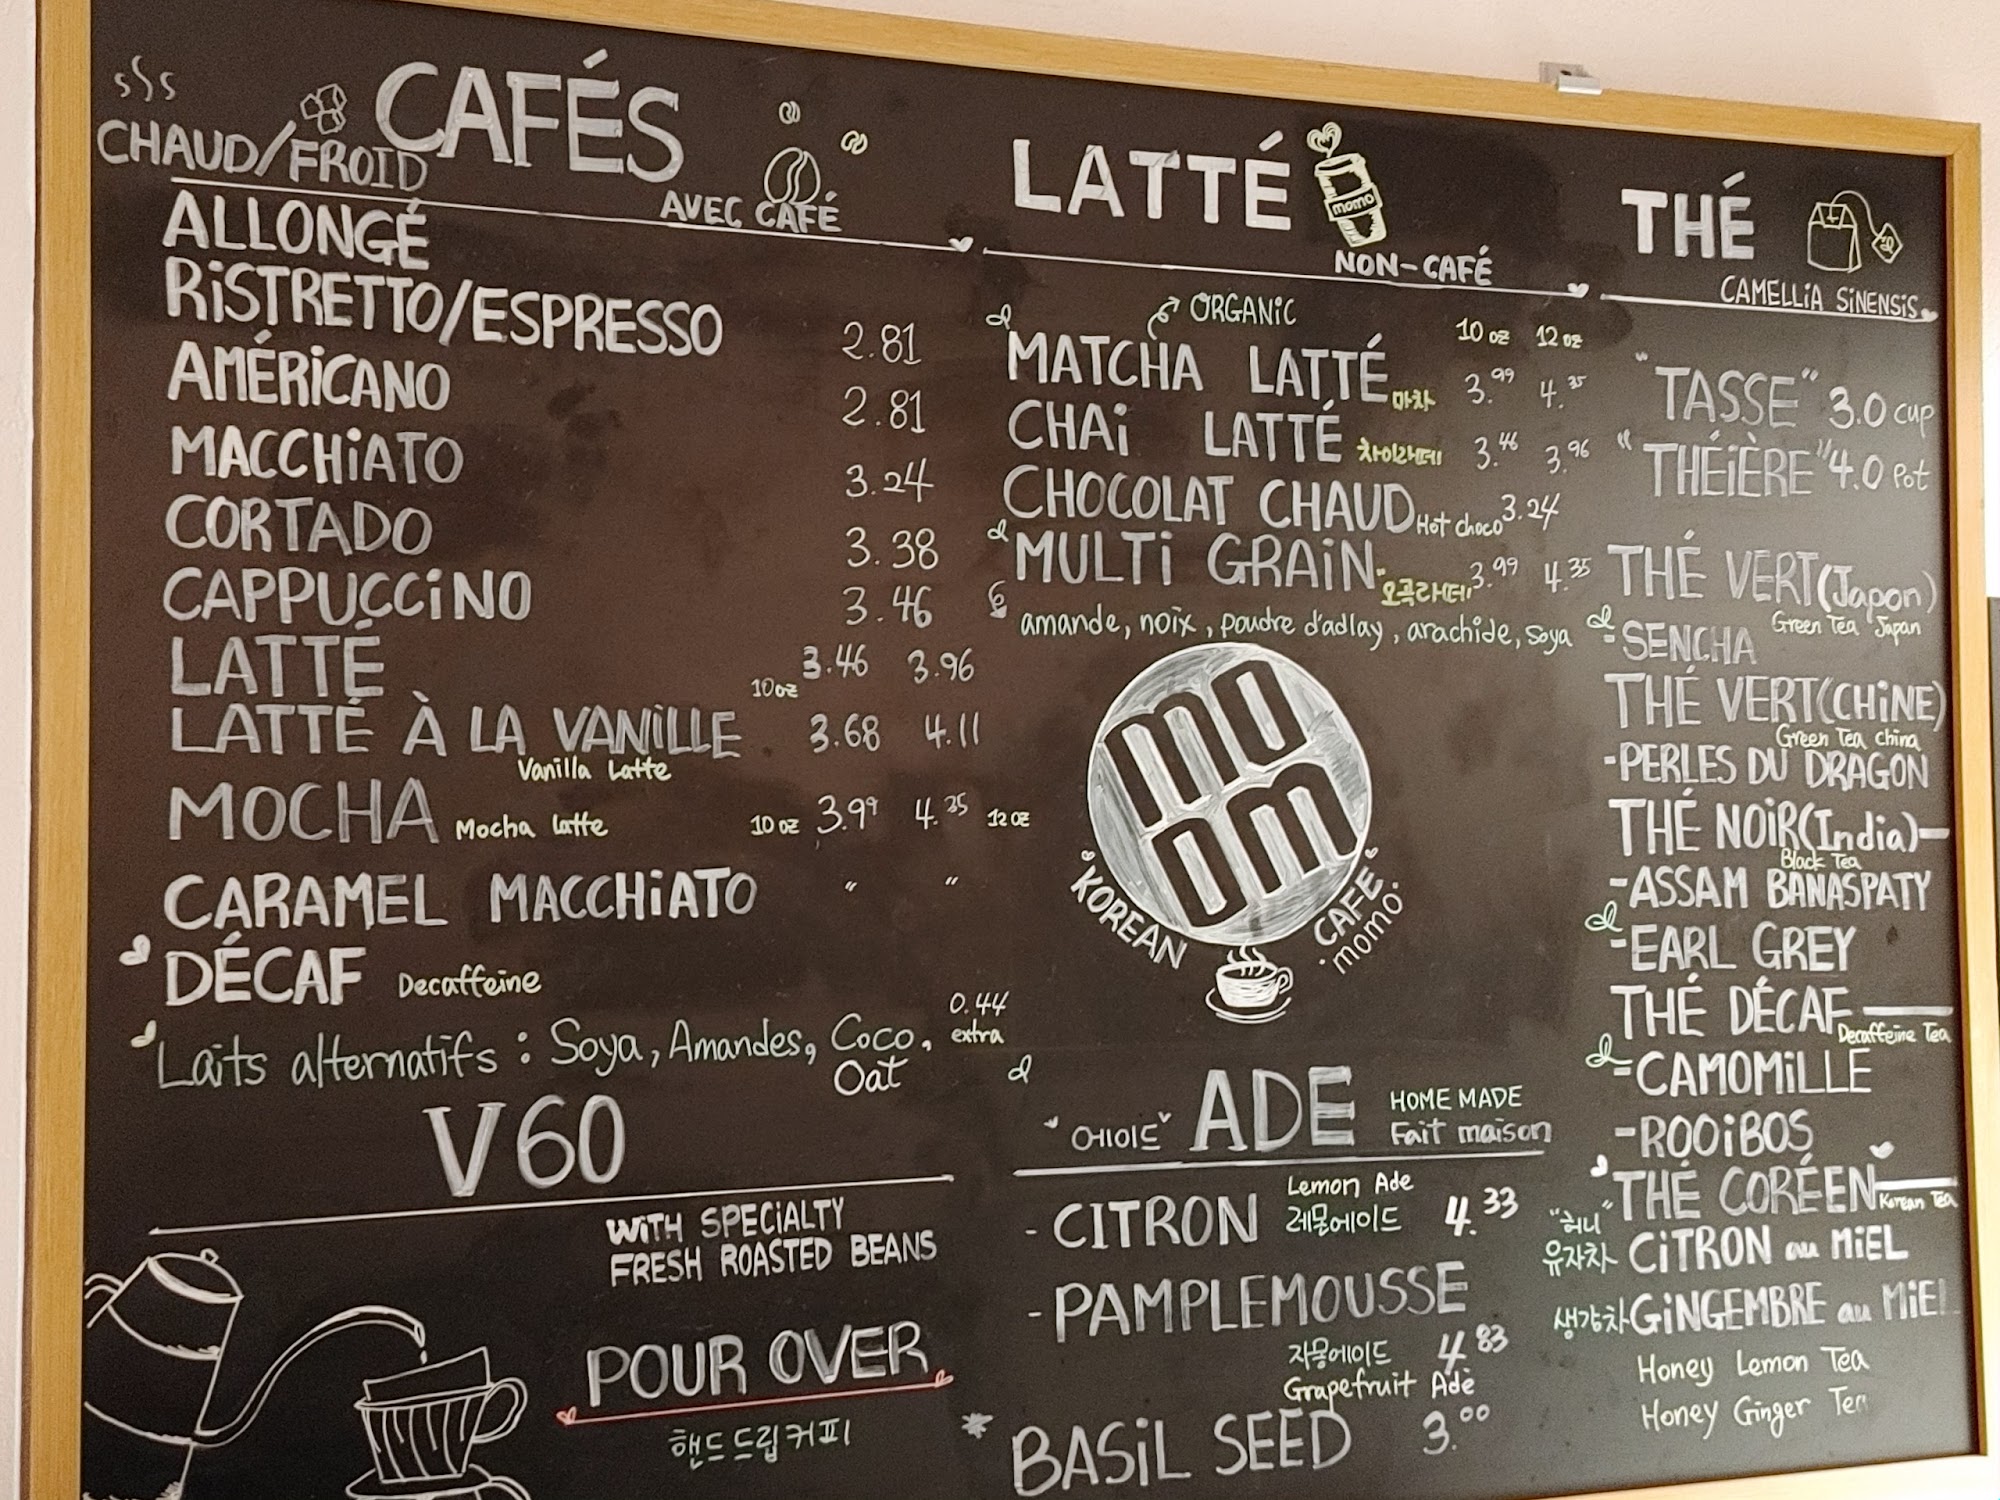 CHAUD/FROID
CAFÉS
AVEC CAFÉ
ALLONGÉ
RiSTRETTO/ESPRESSO 2.81
AMÉRiCANO 2.81
MACCHiATO 3.24
CORTADO 3.38
CAPPUCCiNO 3.46
LATTÉ 10oz 3.46 3.96
LATTÉ À LA VANiLLE 3.68 4.11
Vanilla Latte
MOCHA Mocha latte 10 oz 3.99 4.35 12 oz
CARAMEL MACCHiATO " "
DÉCAF Decaffeine
Laits alternatifs : Soya, Amandes, Coco, 0.44
Oat extra
V60
WiTH SPECiALTY
FRESH ROASTED BEANS
POUR OVER
핸드드립커피
LATTÉ
momo
NON-CAFÉ
ORGANiC
10 oz 12 oz
MATCHA LATTÉ 마차 3.99 4.35
CHAi LATTÉ 차이라떼 3.46 3.96
CHOCOLAT CHAUD Hot choco 3.24
MULTi GRAiN 오곡라떼 3.99 4.35
amande, noix, poudre d'adlay, arachide, soya
MO
MO
KOREAN
CAFE
momo
"에이드" ADE HOME MADE
Fait maison
- CITRON Lemon Ade
레몬에이드 4.33
- PAMPLEMOUSSE
자몽에이드 4.83
Grapefruit Ade
* BASiL SEED 3.00
THÉ
CAMELLiA SiNENSiS
"TASSE" 3.0 cup
"THÉiÈRE" 4.0 Pot
THÉ VERT(Japon)
Green Tea Japan
- SENCHA
THÉ VERT(CHiNE)
Green Tea China
- PERLES DU DRAGON
THÉ NOiR(India)
Black Tea
- ASSAM BANASPATY
- EARL GREY
THÉ DÉCAF
Decaffeine Tea
- CAMOMiLLE
- ROOiBOS
THÉ CORÉEN Korean Tea
"허니"
유자차 CiTRON au MiEL
생강차 GiNGEMBRE au MiEL
Honey Lemon Tea
Honey Ginger Tea